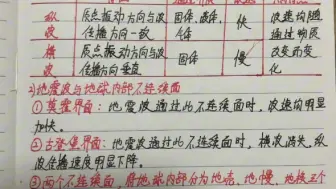 纵波 质点振动方向与波传播方向一致 固体、液体、气体 快 波速均随通过物质改变而变化
横波 质点振动方向与波传播方向垂直 固体 慢
2)地震波与地球内部不连续面
①莫霍界面:地震波通过此不连续面时,波速均明显
加快。
②古登堡界面:地震波通过此不连续面时,横波消失,纵
波传播速度明显下降。
③两个不连续面,将地球内部分为地壳、地幔、地核三个